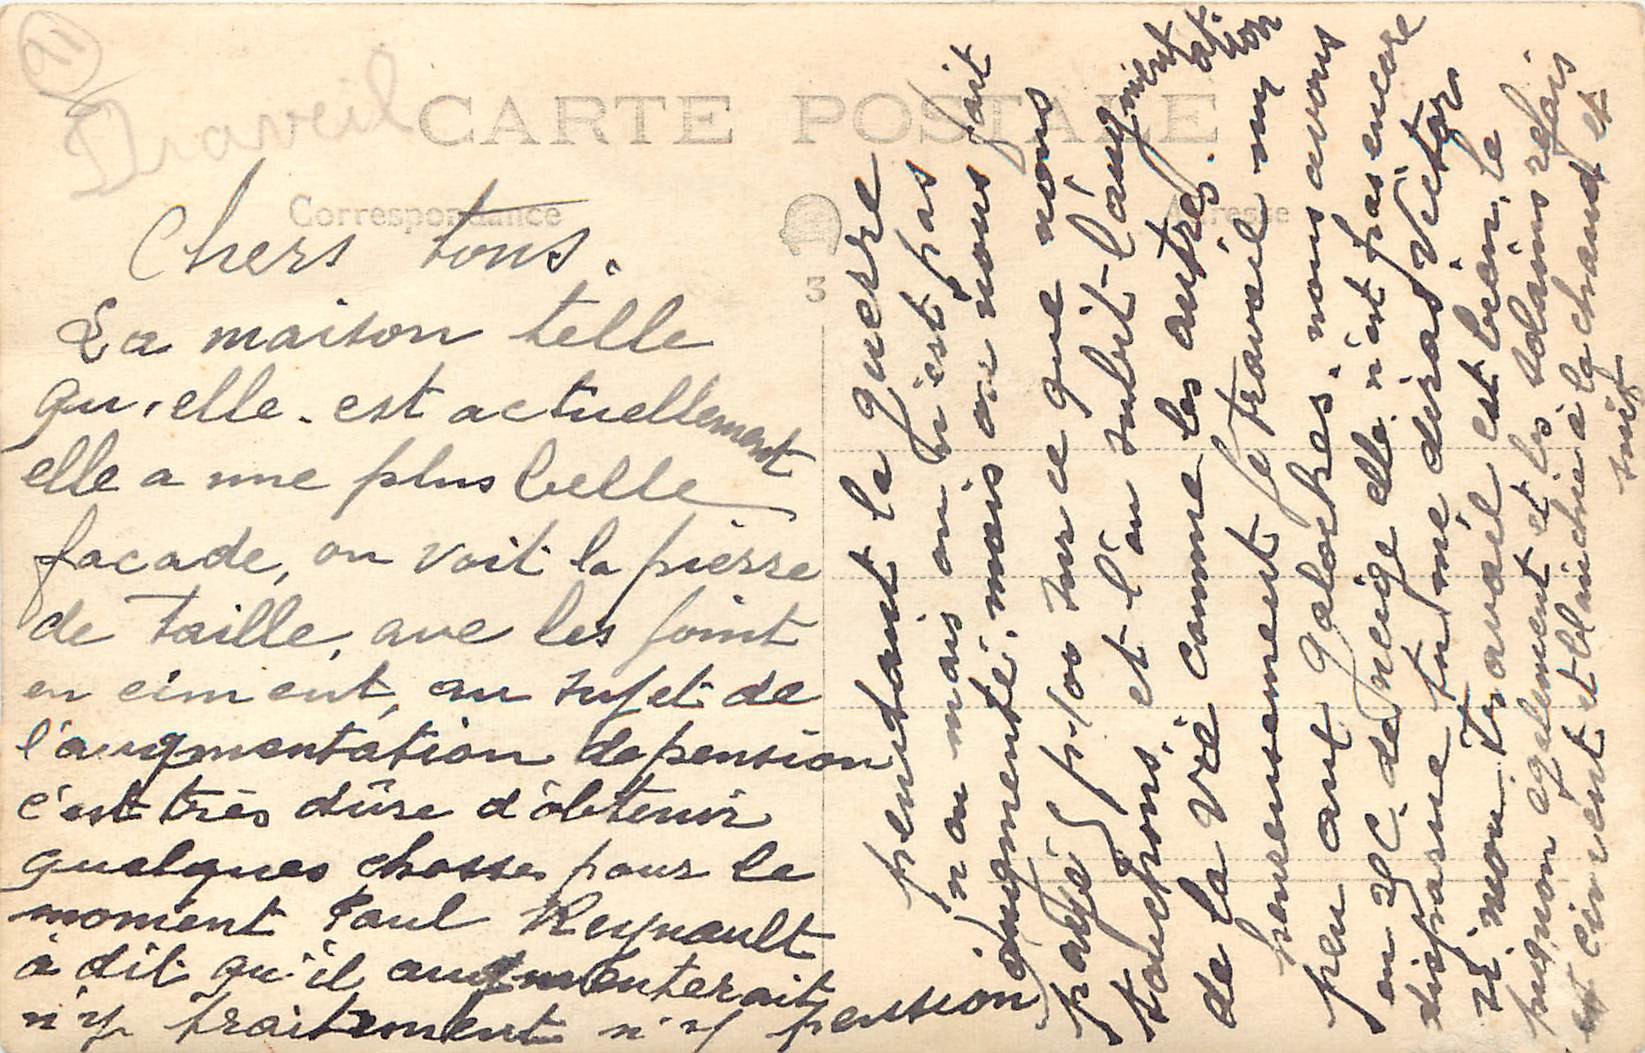 91
Draveil
CARTE POSTALE
Correspondance
Adresse
S
Chers tous.
La maison telle
qu'elle est actuellement
elle a une plus belle
facade, on voit la pierre
de taille, ave les joint
en ciment, au sujet de
l'augmentation de pension
c'est très dûre d'obtenir
quelques chosse pour le
moment Paul Reynault
à dit qu'il augmenterait
n'y traitement n'y pension
pendant la guerre
non mais on n'est pas
augmenté, mais on nous fait
payé sur ce que nous
touchons, et l'on subit l'augmentation
de la vie comme les autres.
heureusement je travail un
peu aut galoches. nous avons
eu de neige elle n'est pas encore
disparue tu me diras Victor
si mon travail est bien, le
pignon egalement et les solains refais
et ciment et blanchie à la chaud et
suif